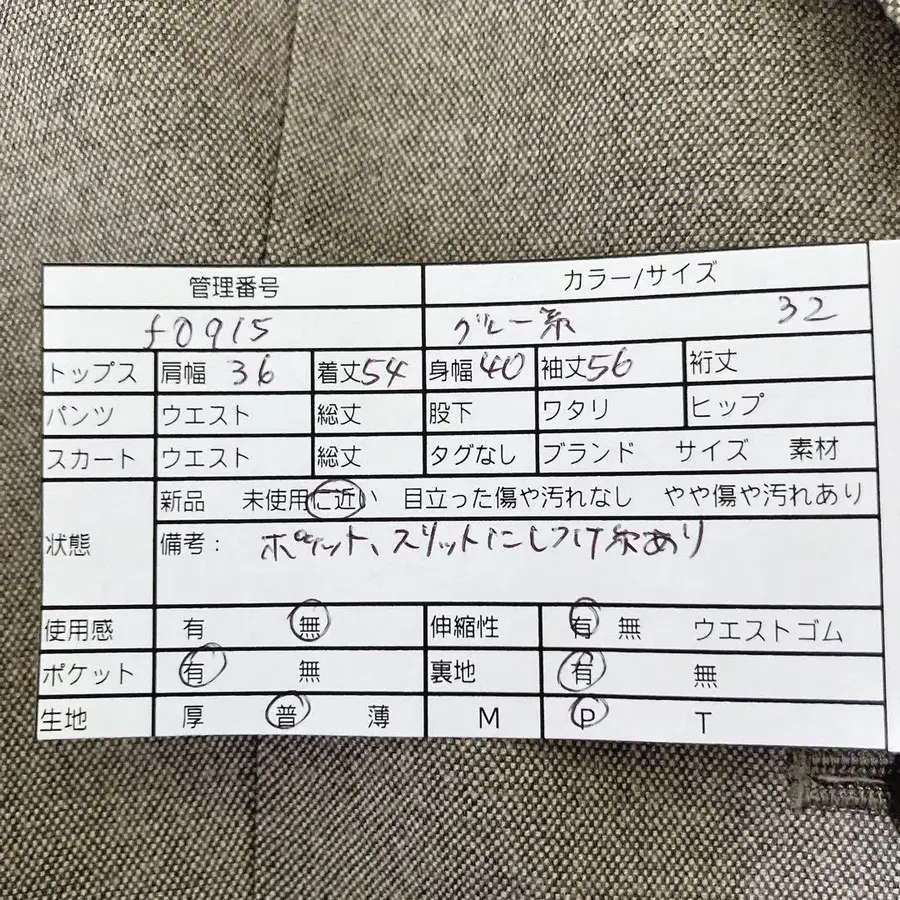 管理番号 カラー/サイズ
f0915 グレー系 32
トップス 肩幅 36 着丈54 身幅40 袖丈56 裄丈
パンツ ウエスト 総丈 股下 ワタリ ヒップ
スカート ウエスト 総丈 タグなし ブランド サイズ 素材
状態 新品 未使用に近い 目立った傷や汚れなし やや傷や汚れあり
備考: ポケット、スリットにしつけ糸あり
使用感 有 無 伸縮性 有 無 ウエストゴム
ポケット 有 無 裏地 有 無
生地 厚 普 薄 M P T